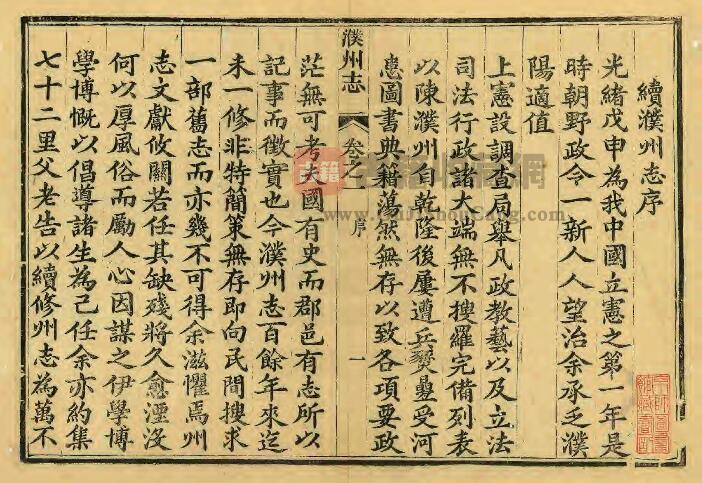 續濮州志序
光緒戊申為我中國立憲之第一年是
時朝野政令一新人人望治余承乏濮
陽適值
上憲設調查局舉凡政教藝以及立法
司法行政諸大端無不搜羅完備列表
以陳濮州自乾隆後屢遭兵燹疊受河
患圖書典籍蕩然無存以致各項要政
濮州志
卷之
序
一
茫無可考夫國有史而郡邑有志所以
記事而徵實也今濮州志百餘年來迄
未一修非特簡策無存即向民間搜求
一部舊志而亦幾不可得余滋懼焉州
志文獻攸關若任其缺殘將久愈湮沒
何以厚風俗而勵人心因謀之伊學博
學博慨以倡導諸生為己任余亦約集
七十二里父老告以續修州志為萬不